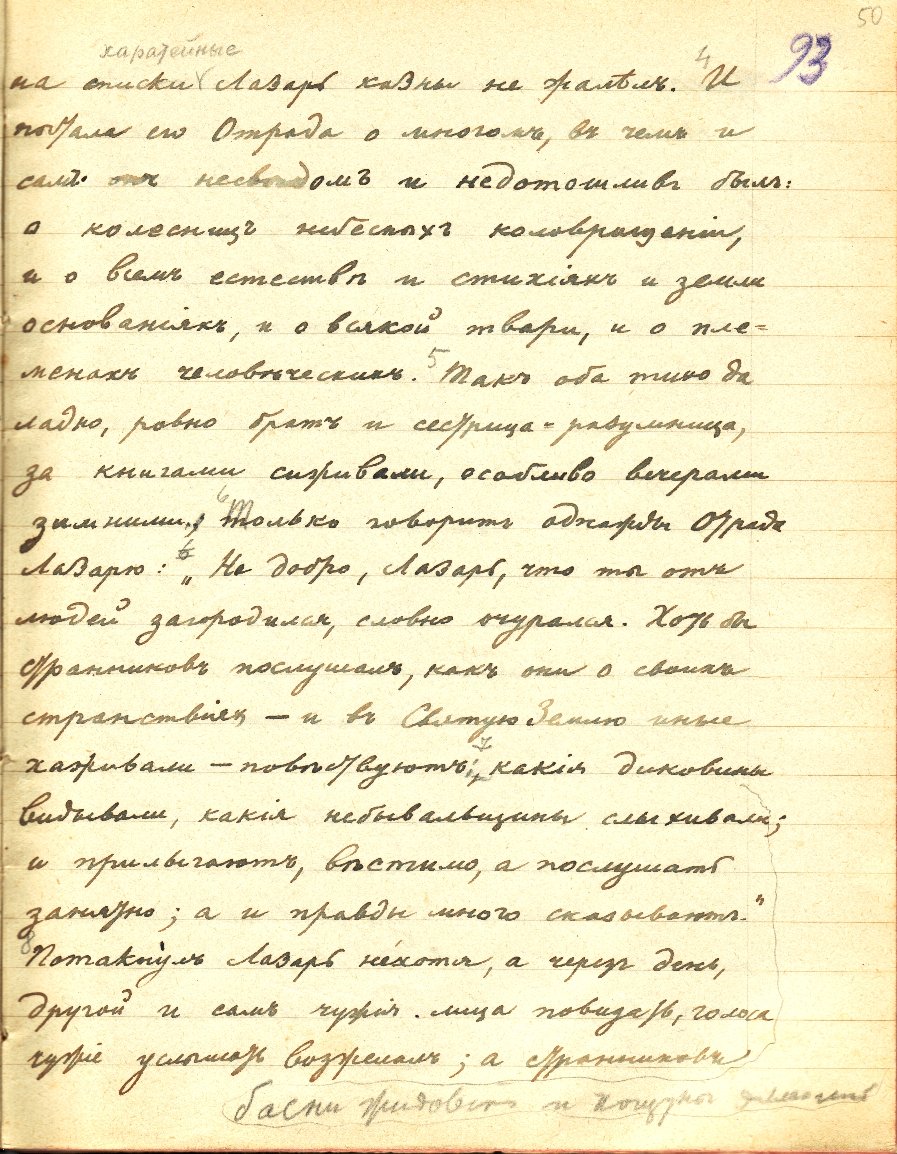 50
93
харатейные
на списки Лазарь казны не жалѣлъ. 4 И
пытала его Отрада о многомъ, въ чемъ и
самъ несвѣдомъ и недотошливъ былъ:
о колесницъ небесныхъ коловращеніи,
и о всемъ естествѣ и стихіяхъ и земли
основаніяхъ, и о всякой твари, и о пле=
менахъ человѣческихъ. 5 Такъ оба тихо да
ладно, ровно братъ и сестрица-разумница,
за книгами сиживали, особливо вечерами
зимними. 6 Только говоритъ однажды Отрада
Лазарю: „Не добро, Лазарь, что ты отъ
людей загородился, словно очурался. Хоть бы
странниковъ послушалъ, какъ они о своихъ
странствіяхъ – и въ Святую Землю иные
хаживали – повѣствуютъ: 7 какія диковины
видывали, какія небывальщины слыхивали;
и прилыгаютъ, вѣстимо, а послушать
занятно; а и правды много сказываютъ."
8 Потакнулъ Лазарь не́хотя, а черезъ день,
другой и самъ чужія лица повидать, голоса
чужіе услышать возжелалъ; а странниковъ
басни жидовскія и кощуны